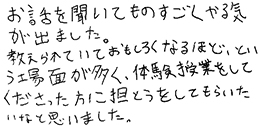 お話を聞いてものすごくやる気
が出ました。
教えられていておもしろくなるほど、とい
う場面が多く、体験授業をして
くださった方に担とうをしてもらいた
いなと思いました。